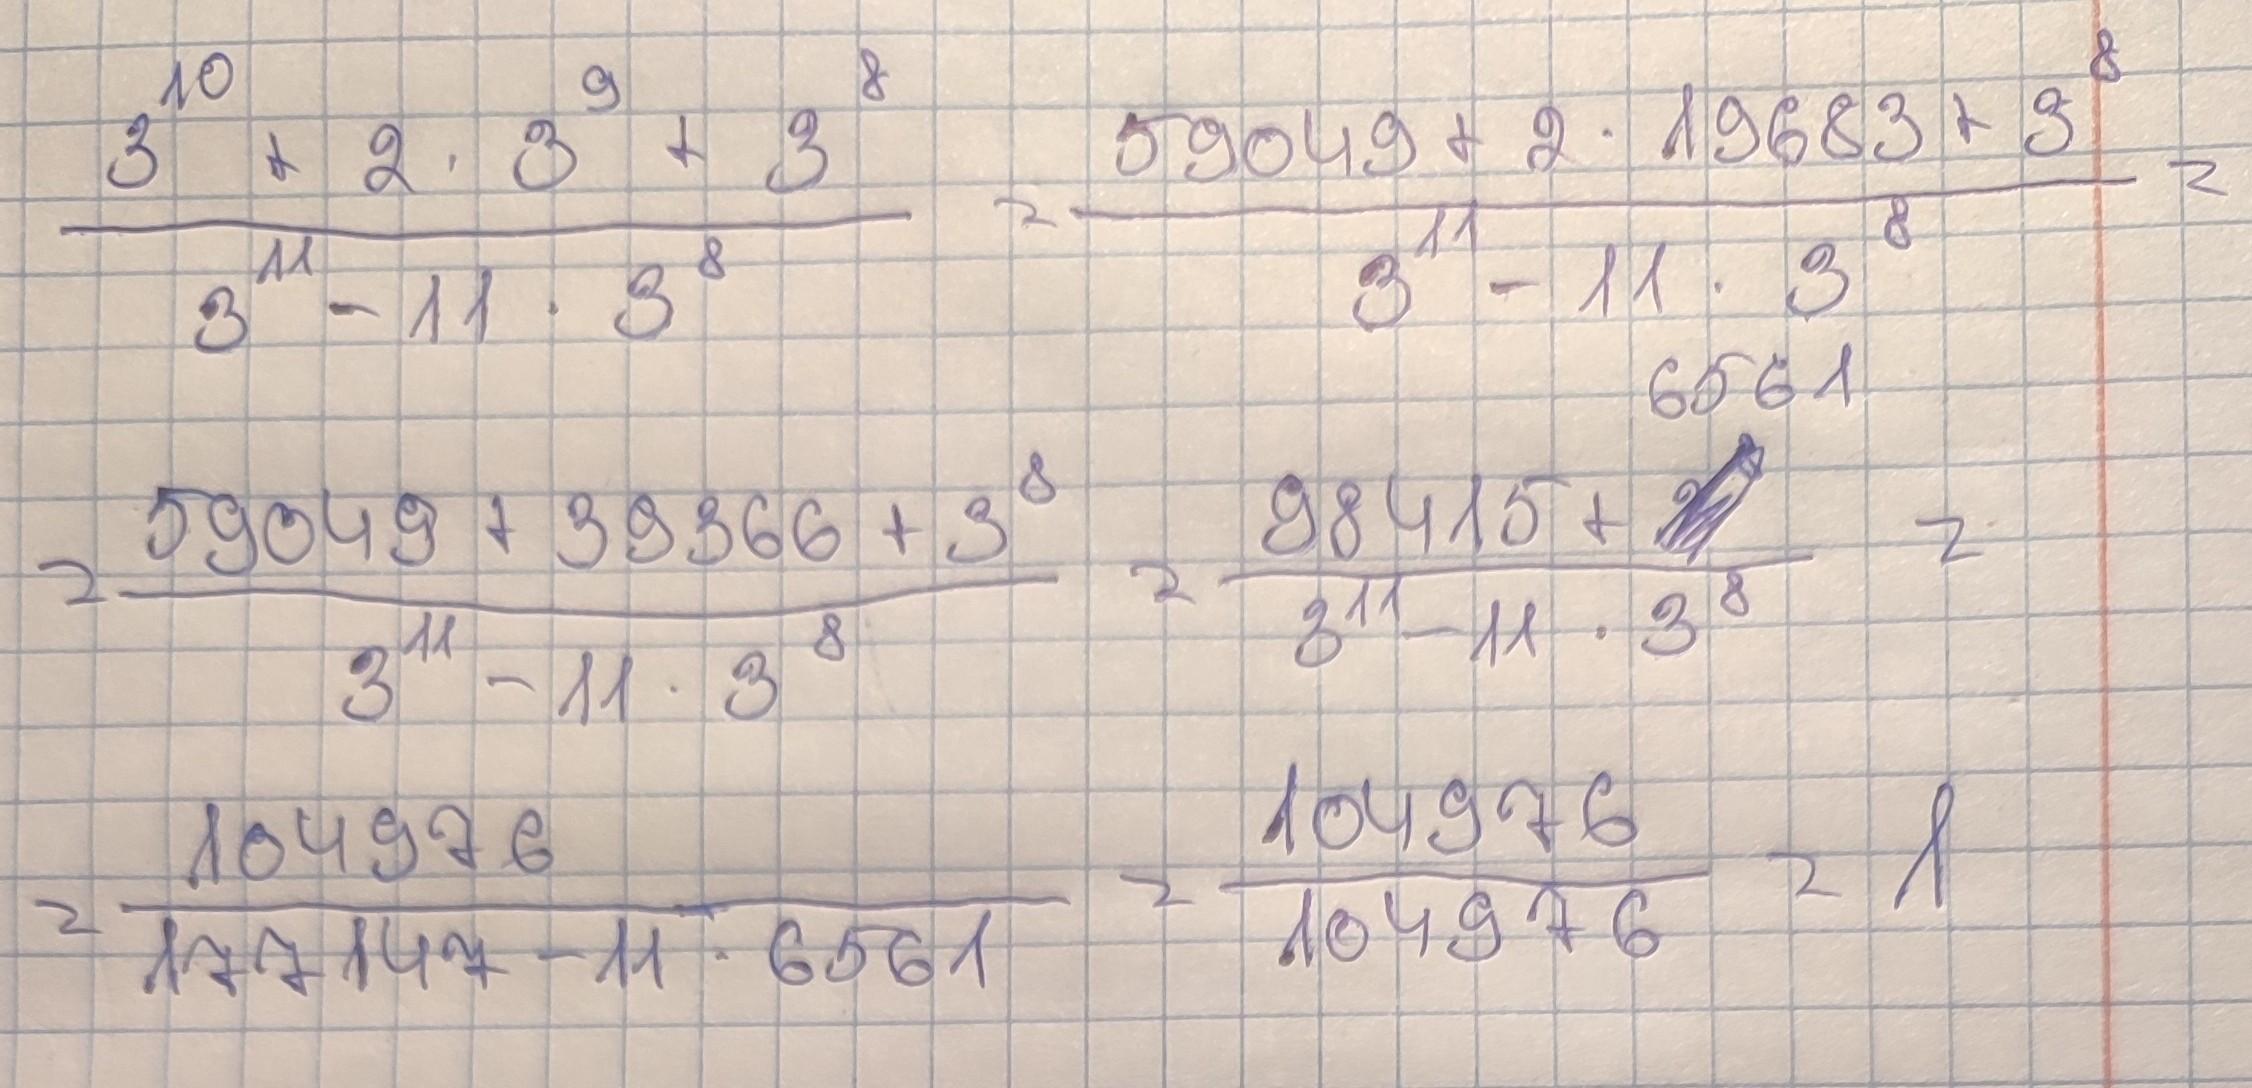 (3^10 + 2 · 3^9 + 3^8) / (3^11 - 11 · 3^8) = (59049 + 2 · 19683 + 3^8) / (3^11 - 11 · 3^8) =
= (59049 + 39366 + 3^8) / (3^11 - 11 · 3^8) = (98415 + 6561) / (3^11 - 11 · 3^8) =
= 104976 / (177147 - 11 · 6561) = 104976 / 104976 = 1